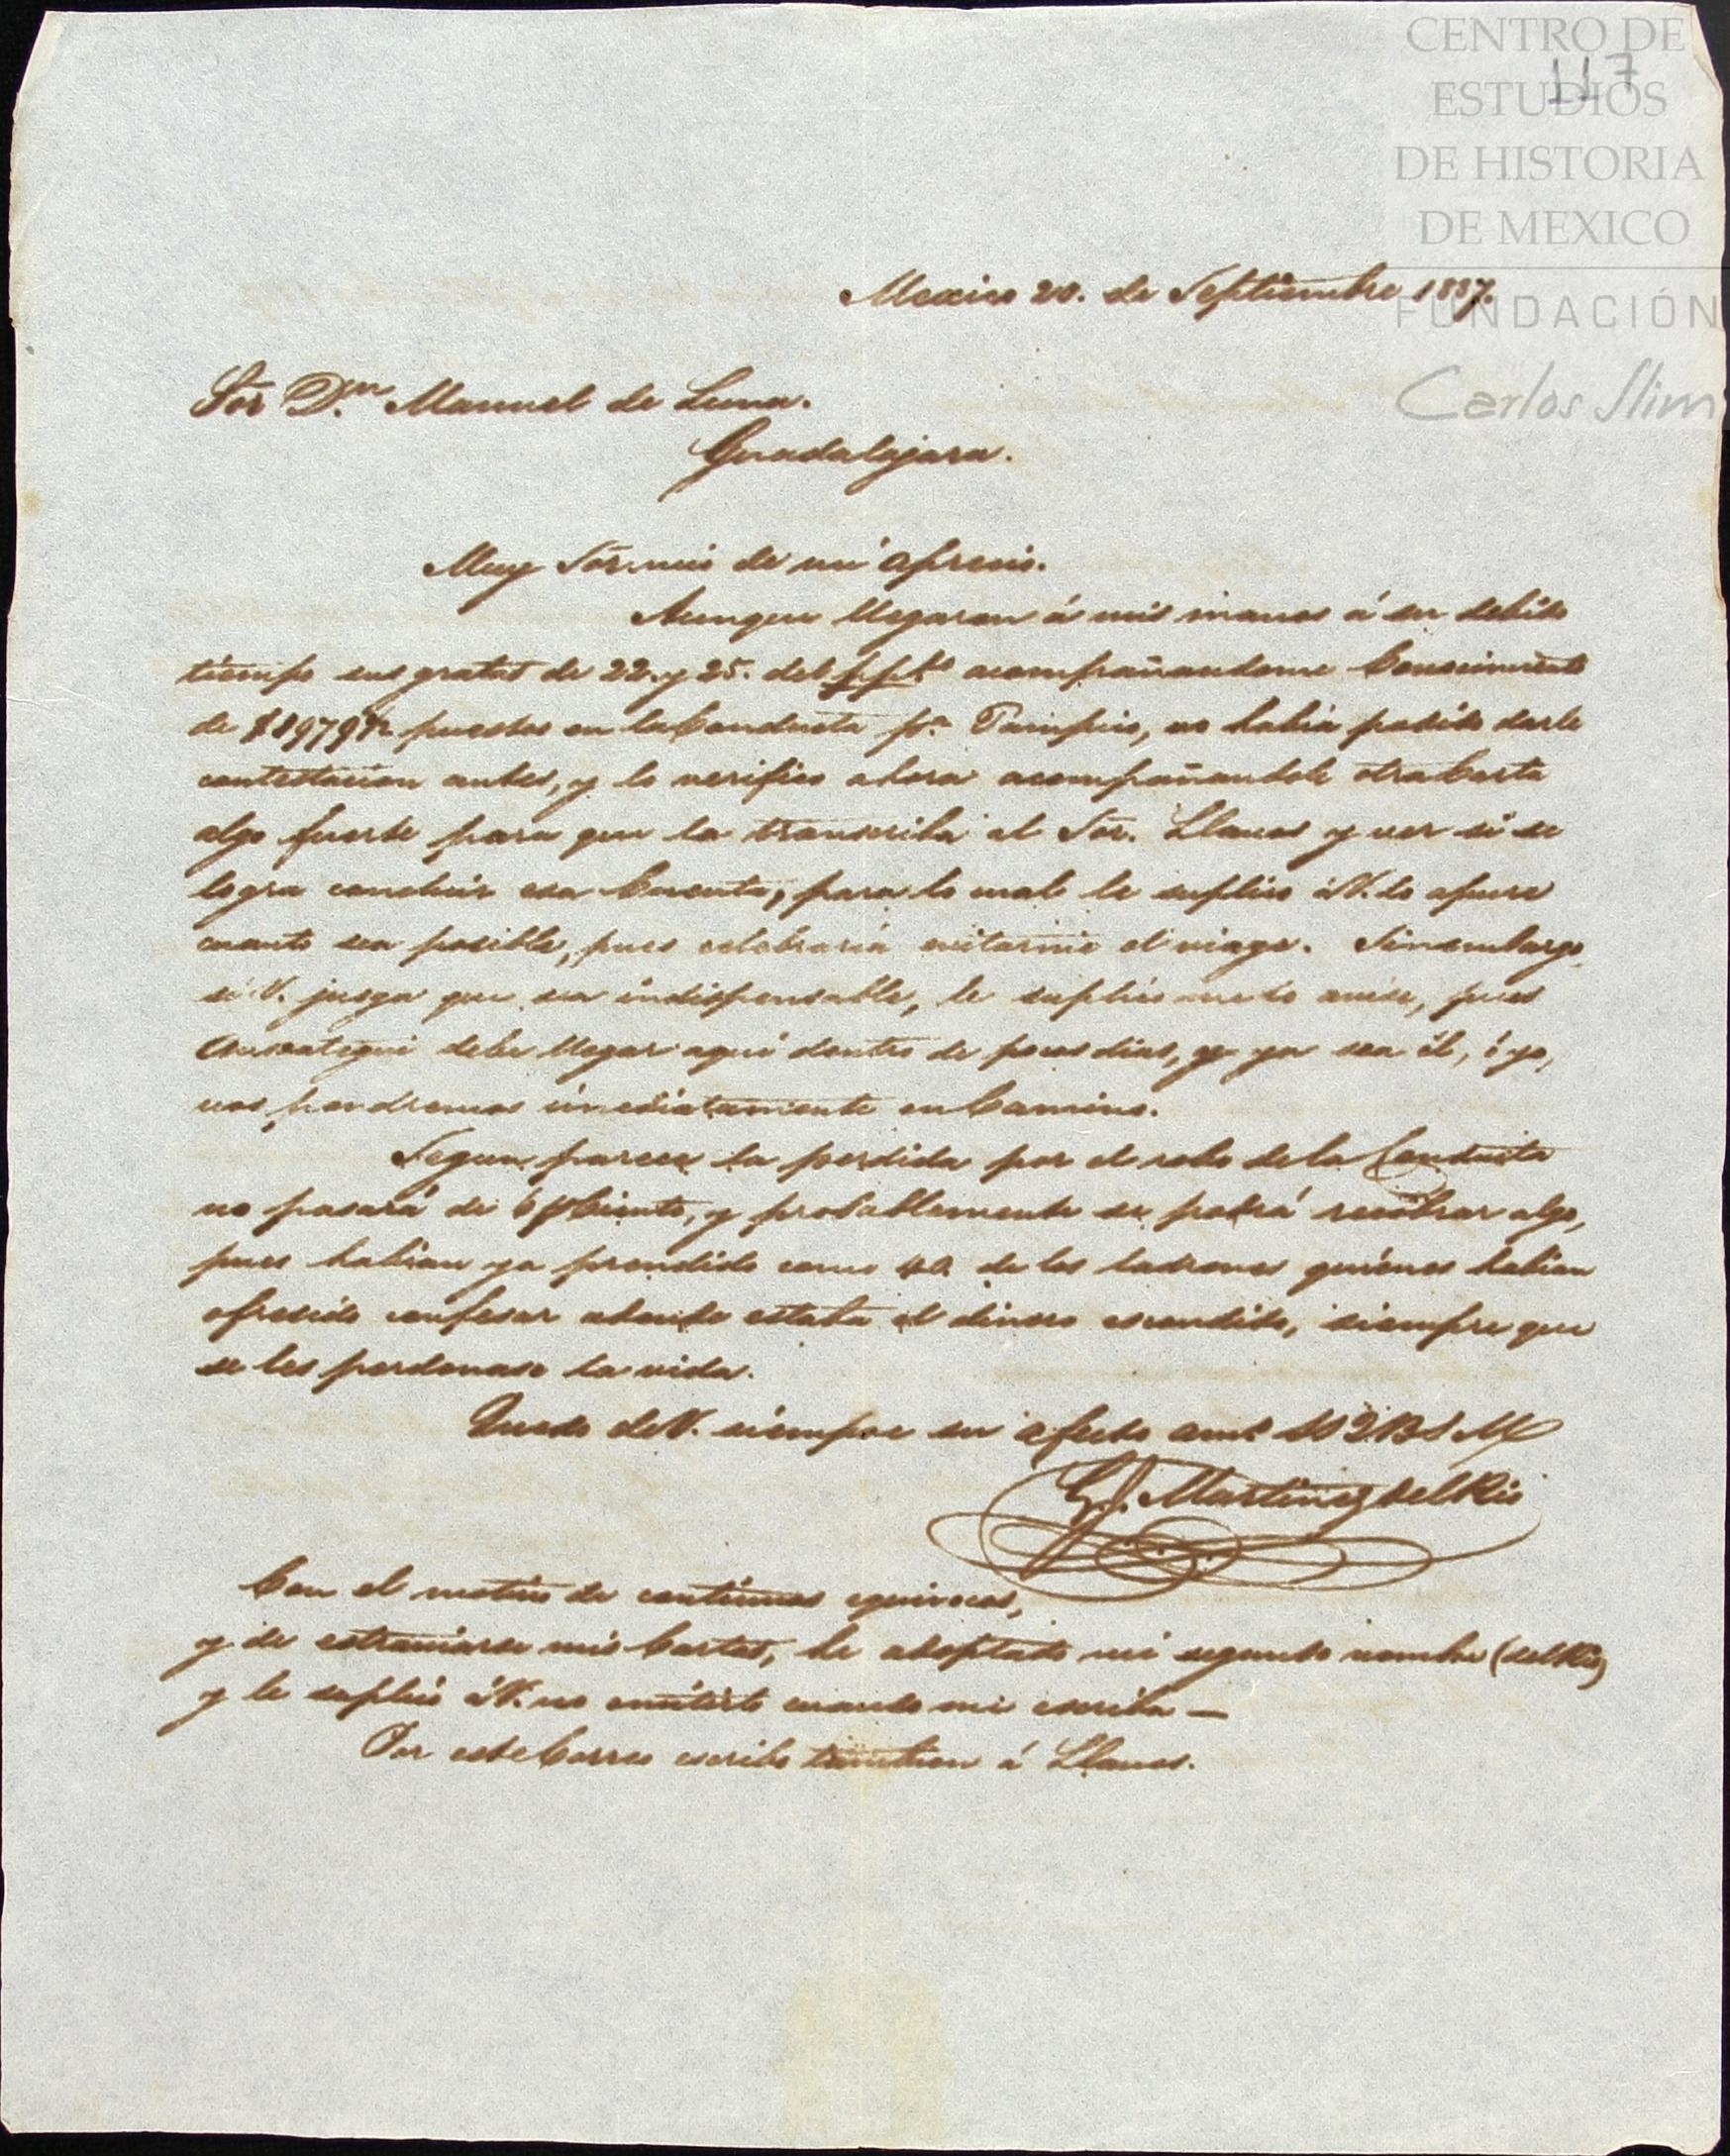 CENTRO DE
ESTUDIOS
DE HISTORIA
DE MEXICO
FUNDACIÓN
Carlos Slim
117
Mexico 20. de Septiembre 1837.
Sor Dn. Manuel de Luna.
Guadalajara.
Muy Sor. mio de mi aprecio.
Aunque llegaron á mis manos á su debido
tiempo sus gratas de 22. y 25. del acompañandome Conocimiento
de puestos en la Conducta pa. Tampico, no habia podido darle
contestacion antes, y lo verifico ahora acompañandole otra Carta
algo fuerte para que la transcriba al Sor. Llanos y ver si se
logra concluir esa Cuenta, para lo cual le suplico á V. lo apure
cuanto sea posible, pues celebraria evitarme el viage. Sinembargo,
si V. jusga que sea indispensable, le suplico me lo avise, pues
debe llegar aquí dentro de pocos dias, y ya sea él, ó yo,
nos pondremos inmediatamente en Camino.
Segun parece la perdida por el robo de la Conducta
no pasará de 6 pCiento, y probablemente se podrá recobrar algo,
pues habian ya prendido como 40. de los ladrones quiénes habian
ofrecido confesar adonde estaba el dinero escondido, siempre que
se les perdonase la vida.
Quedo de V. siempre su afecto amo. SS Q B S M
G. J. Martinez del Rio
Con el motivo de continuas equivocas,
y de estraviarse mis Cartas, he adoptado mi segundo nombre (del Rio)
y le suplico á V. no omitirlo cuando me escriba —
Por este Correo escribo tambien á Llanos.